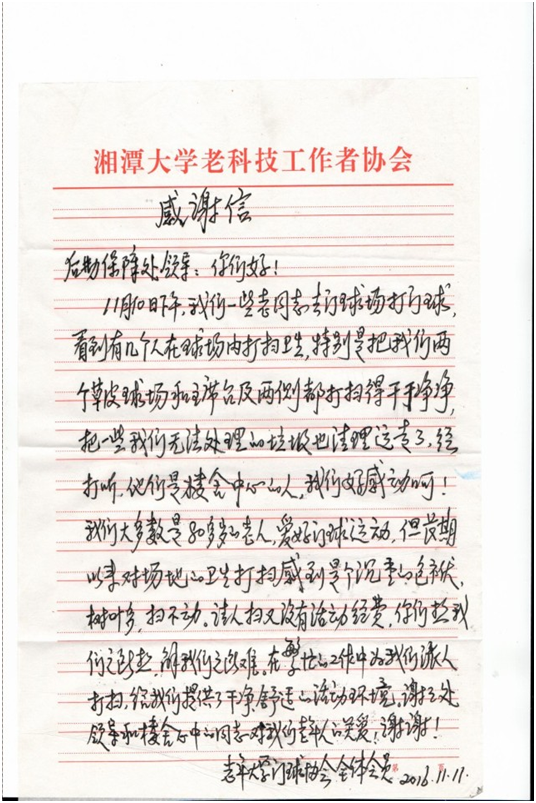 湘潭大学老科技工作者协会
感谢信
后勤保障处领导：你们好！
11月10日下午，我们一些老同志去门球场打门球，
看到有几个人在球场内打扫卫生，特别是把我们两
个草皮球场和主席台及两侧都打扫得干干净净，
把一些我们无法处理的垃圾也清理运走了，经
打听，他们是楼舍中心的人，我们好感动啊！
我们大多数是80多岁的老人，爱好门球运动，但长期
以来对场地的卫生打扫感到是个沉重的包袱，
树叶多，扫不动。请人扫又没有活动经费，你们急我
们之所急，解我们之所难。在繁忙的工作中为我们派人
打扫，给我们提供了干净舒适的活动环境，谢谢处
领导和楼舍中心的同志对我们老年人的关爱！谢谢！
老年大学门球协会全体会员
2016.11.11.